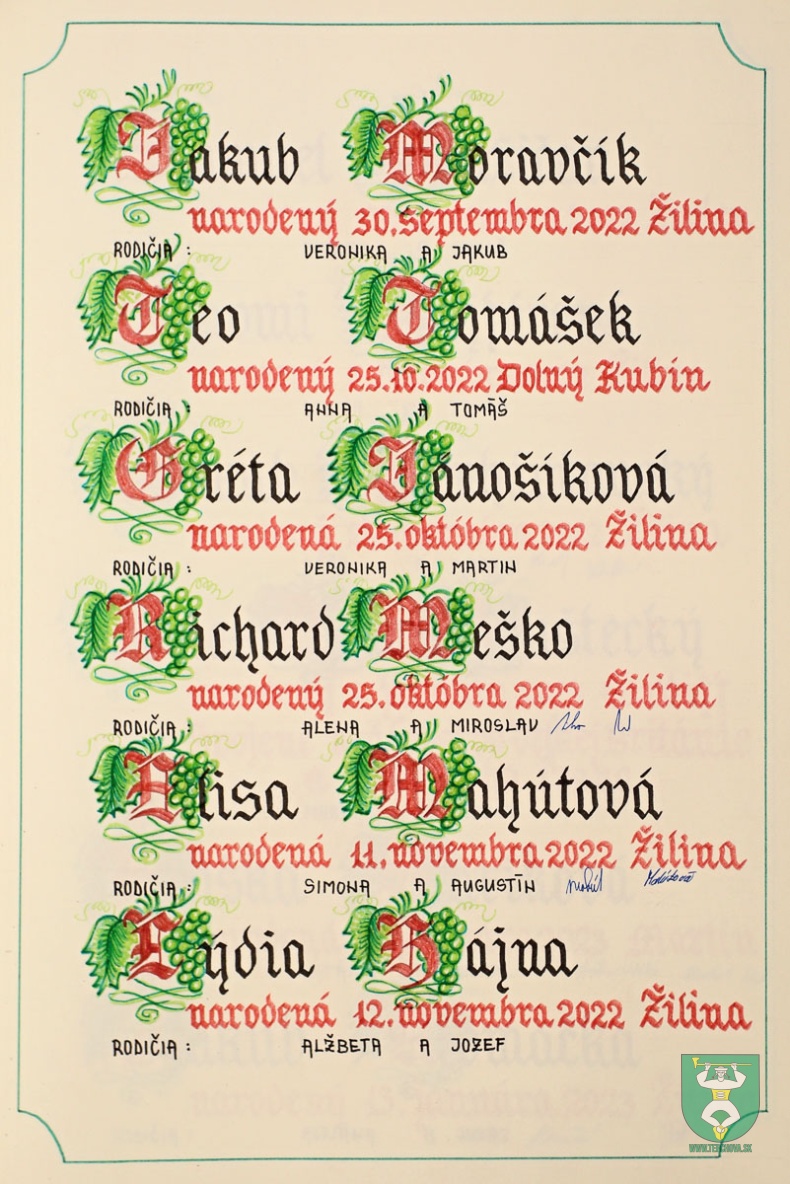 Jakub Moravčík
narodený 30. septembra 2022 Žilina
RODIČIA : VERONIKA A JAKUB
Teo Tomášek
narodený 25.10.2022 Dolný Kubín
RODIČIA : ANNA A TOMÁŠ
Gréta Jánošíková
narodená 25. októbra 2022 Žilina
RODIČIA : VERONIKA A MARTIN
Richard Meško
narodený 25. októbra 2022 Žilina
RODIČIA : ALENA A MIROSLAV
Elisa Mahútová
narodená 11. novembra 2022 Žilina
RODIČIA : SIMONA A AUGUSTÍN
Lýdia Hájna
narodená 12. novembra 2022 Žilina
RODIČIA : ALŽBETA A JOZEF
WWW.TERCHOVA.SK